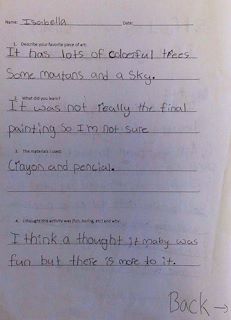 Name: Isabella Date:
1. Describe your favorite piece of art:
It has lots of colorful trees
Some moutans and a sky.
2. What did you learn?
It was not really the final
painting so I'm not sure
3. The materials I used:
Crayon and pencial.
4. I thought this activity was (fun, boring, etc) and why:
I think a thought it mabey was
fun but there is more to it.
Back →